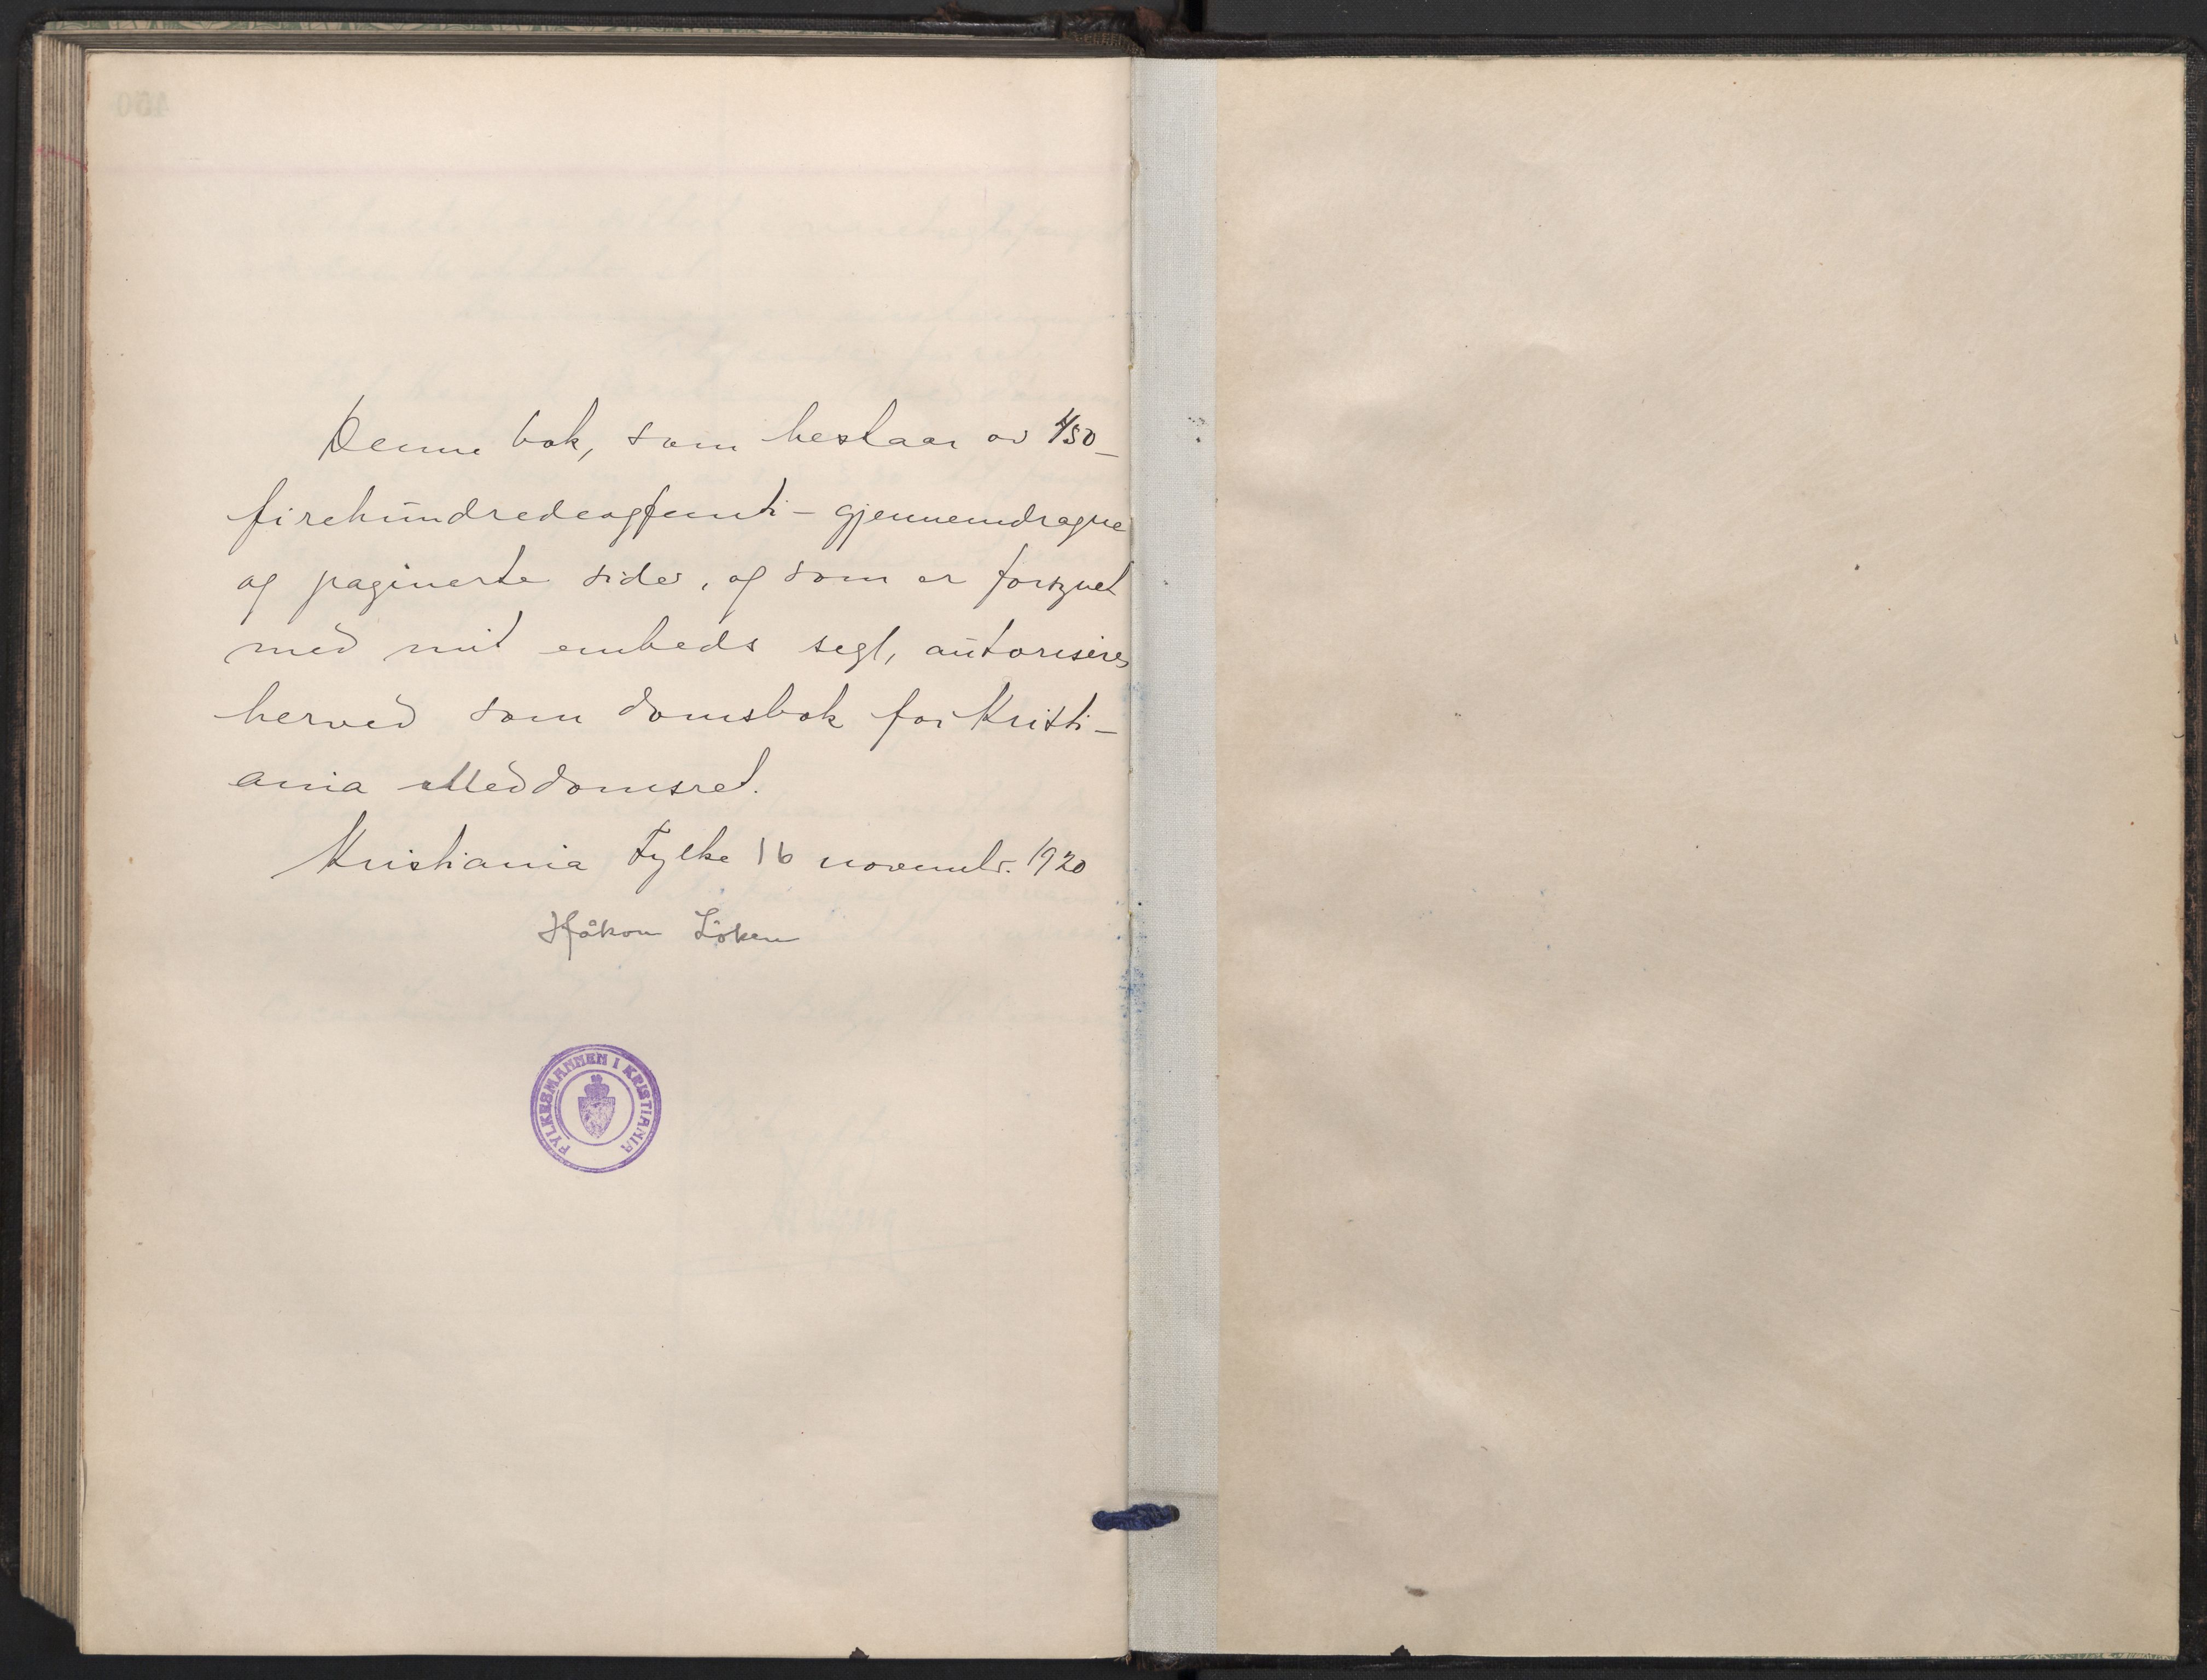 Denne bok, som bestaar av 450 –
firehundredeogfemti – gjennemdragne
og paginerte sider, og som er forsynet
med mit embeds segl, autoriseres
herved som domsbok for Kristi-
ania Meddomsret.
Kristiania Fylke 16 novembr. 1920
Håkon Löken
FYLKESMANNEN I KRISTIANIA